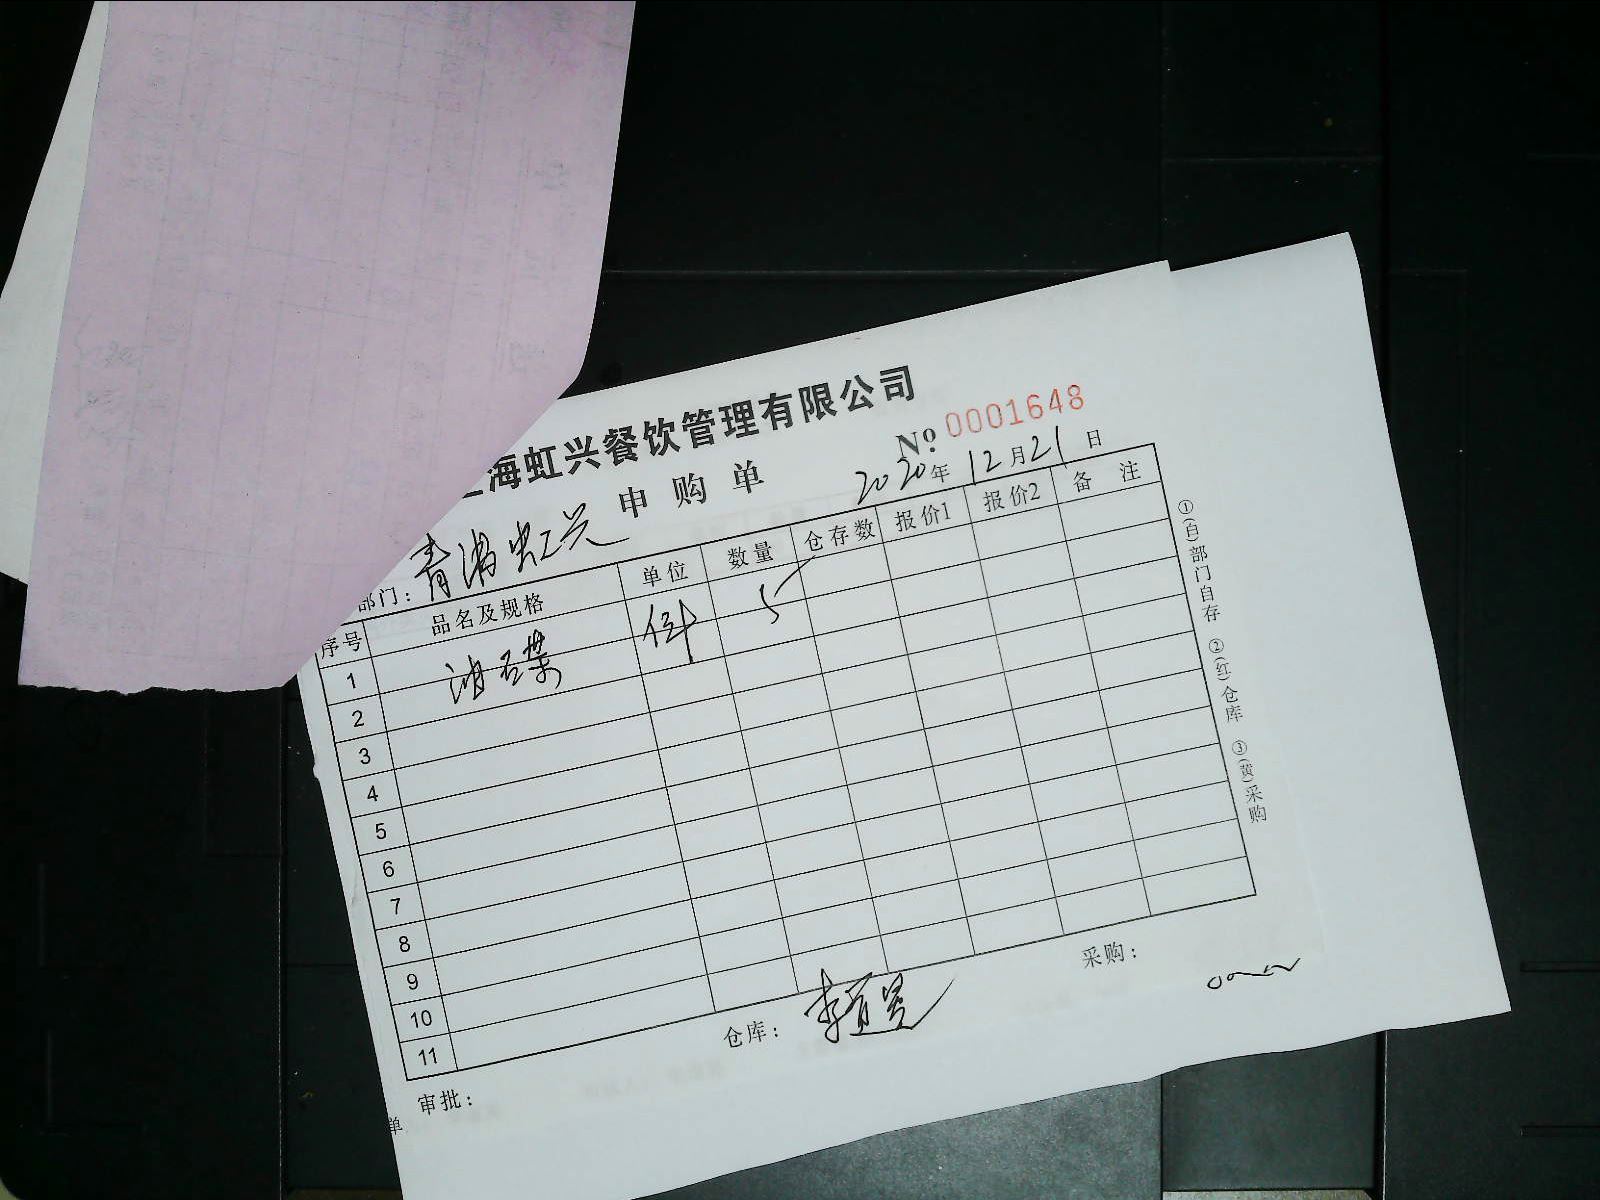 上海虹兴餐饮管理有限公司
申购单
№ 0001648
2020年12月21日
部门：青浦虹兴
序号 品名及规格 单位 数量 仓存数 报价1 报价2 备注
1 件 5
2
3
4
5
6
7
8
9
10
11
审批： 仓库： 采购：
①(白)部门自存 ②(红)仓库 ③(黄)采购
单